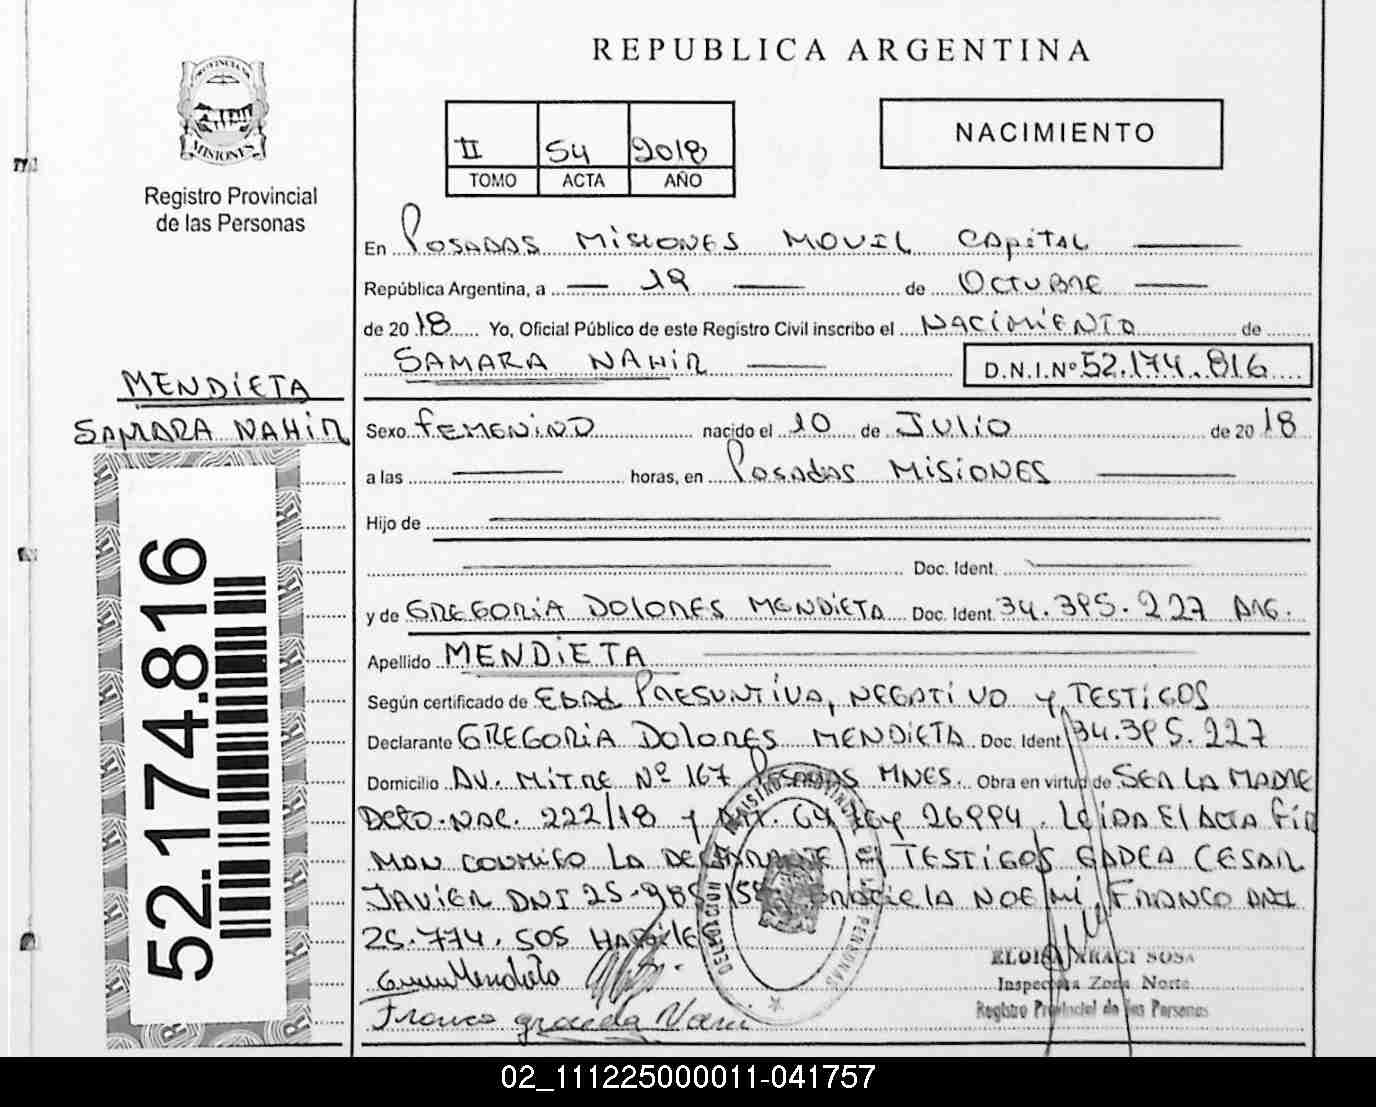 REPUBLICA ARGENTINA
PROVINCIA DE
MISIONES
Registro Provincial
de las Personas
II 54 2018
TOMO ACTA AÑO
NACIMIENTO
En Posadas Misiones Movil Capital
República Argentina, a 19 de Octubre
de 2018 Yo, Oficial Público de este Registro Civil inscribo el Nacimiento de
Samara Nahir D.N.I.Nº 52.174.816
MENDIETA
SAMARA NAHIR
52.174.816
Sexo Femenino nacido el 10 de Julio de 2018
a las horas, en Posadas Misiones
Hijo de
Doc. Ident.
y de Gregoria Dolores Mendieta Doc. Ident 34.395.227 Arg.
Apellido MENDIETA
Según certificado de Edad Presuntiva, Negativo y Testigos
Declarante Gregoria Dolores Mendieta Doc. Ident 34.395.227
Domicilio Av. Mitre Nº 167 Posadas Mnes. Obra en virtud de Ser la Madre
Dcto. Nac. 222/18 y Art. 64 Ley 26994. Leida el acta fir
man conmigo la declarante y testigos Gadea Cesar
Javier DNI 25. Graciela Noemi Franco DNI
25.774.505 Habiles
Franco Graciela Noemi
ELOISA ARACI SOSA
Inspectora Zona Norte
Registro Provincial de las Personas
02_111225000011-041757